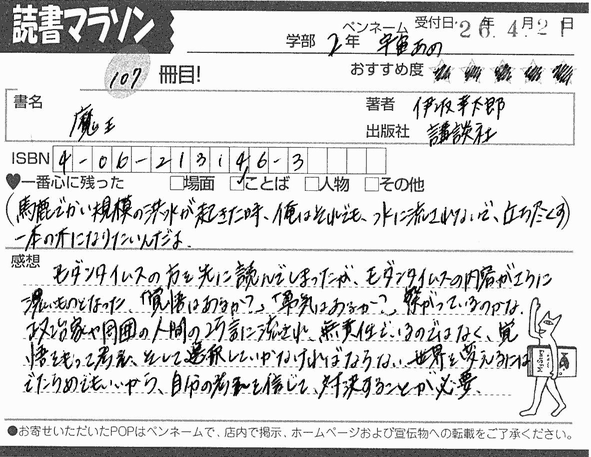 読書マラソン
学部 2年 ペンネーム 宇宙あめ 受付日・26年4月21日
107冊目!
おすすめ度 ★★★★★
書名 魔王
著者 伊坂幸太郎
出版社 講談社
ISBN 4-06-213146-3
♥一番心に残った □場面 ☑ことば □人物 □その他
(馬鹿でかい規模の洪水が起きた時、俺はそれでも、水に流されないで、立ち尽くす
一本の木になりたいんだよ.)
感想
モダンタイムスの方を先に読んでしまったが、モダンタイムスの内容がさらに
濃いものとなった.「覚悟はあるか?」「勇気はあるか?」繋がっているのかな.
政治家や周囲の人間の巧言に流され、無責任でいるのではなく、覚
悟をもって考え、そして選択していかなければならない.世界を変えるには
でたらめでもいいから、自分の考えを信じて、対決することが必要.
●お寄せいただいたPOPはペンネームで、店内で掲示、ホームページおよび宣伝物への転載をご了承ください。